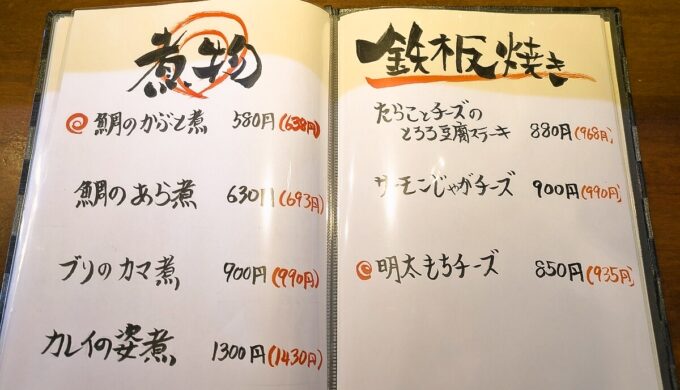 煮物
鯛のかぶと煮 580円(638円)
鯛のあら煮 630円(693円)
ブリのカマ煮 900円(990円)
カレイの姿煮 1300円(1430円)
鉄板焼き
たらことチーズの
とろろ豆腐ステーキ 880円(968円)
サーモンじゃがチーズ 900円(990円)
明太もちチーズ 850円(935円)